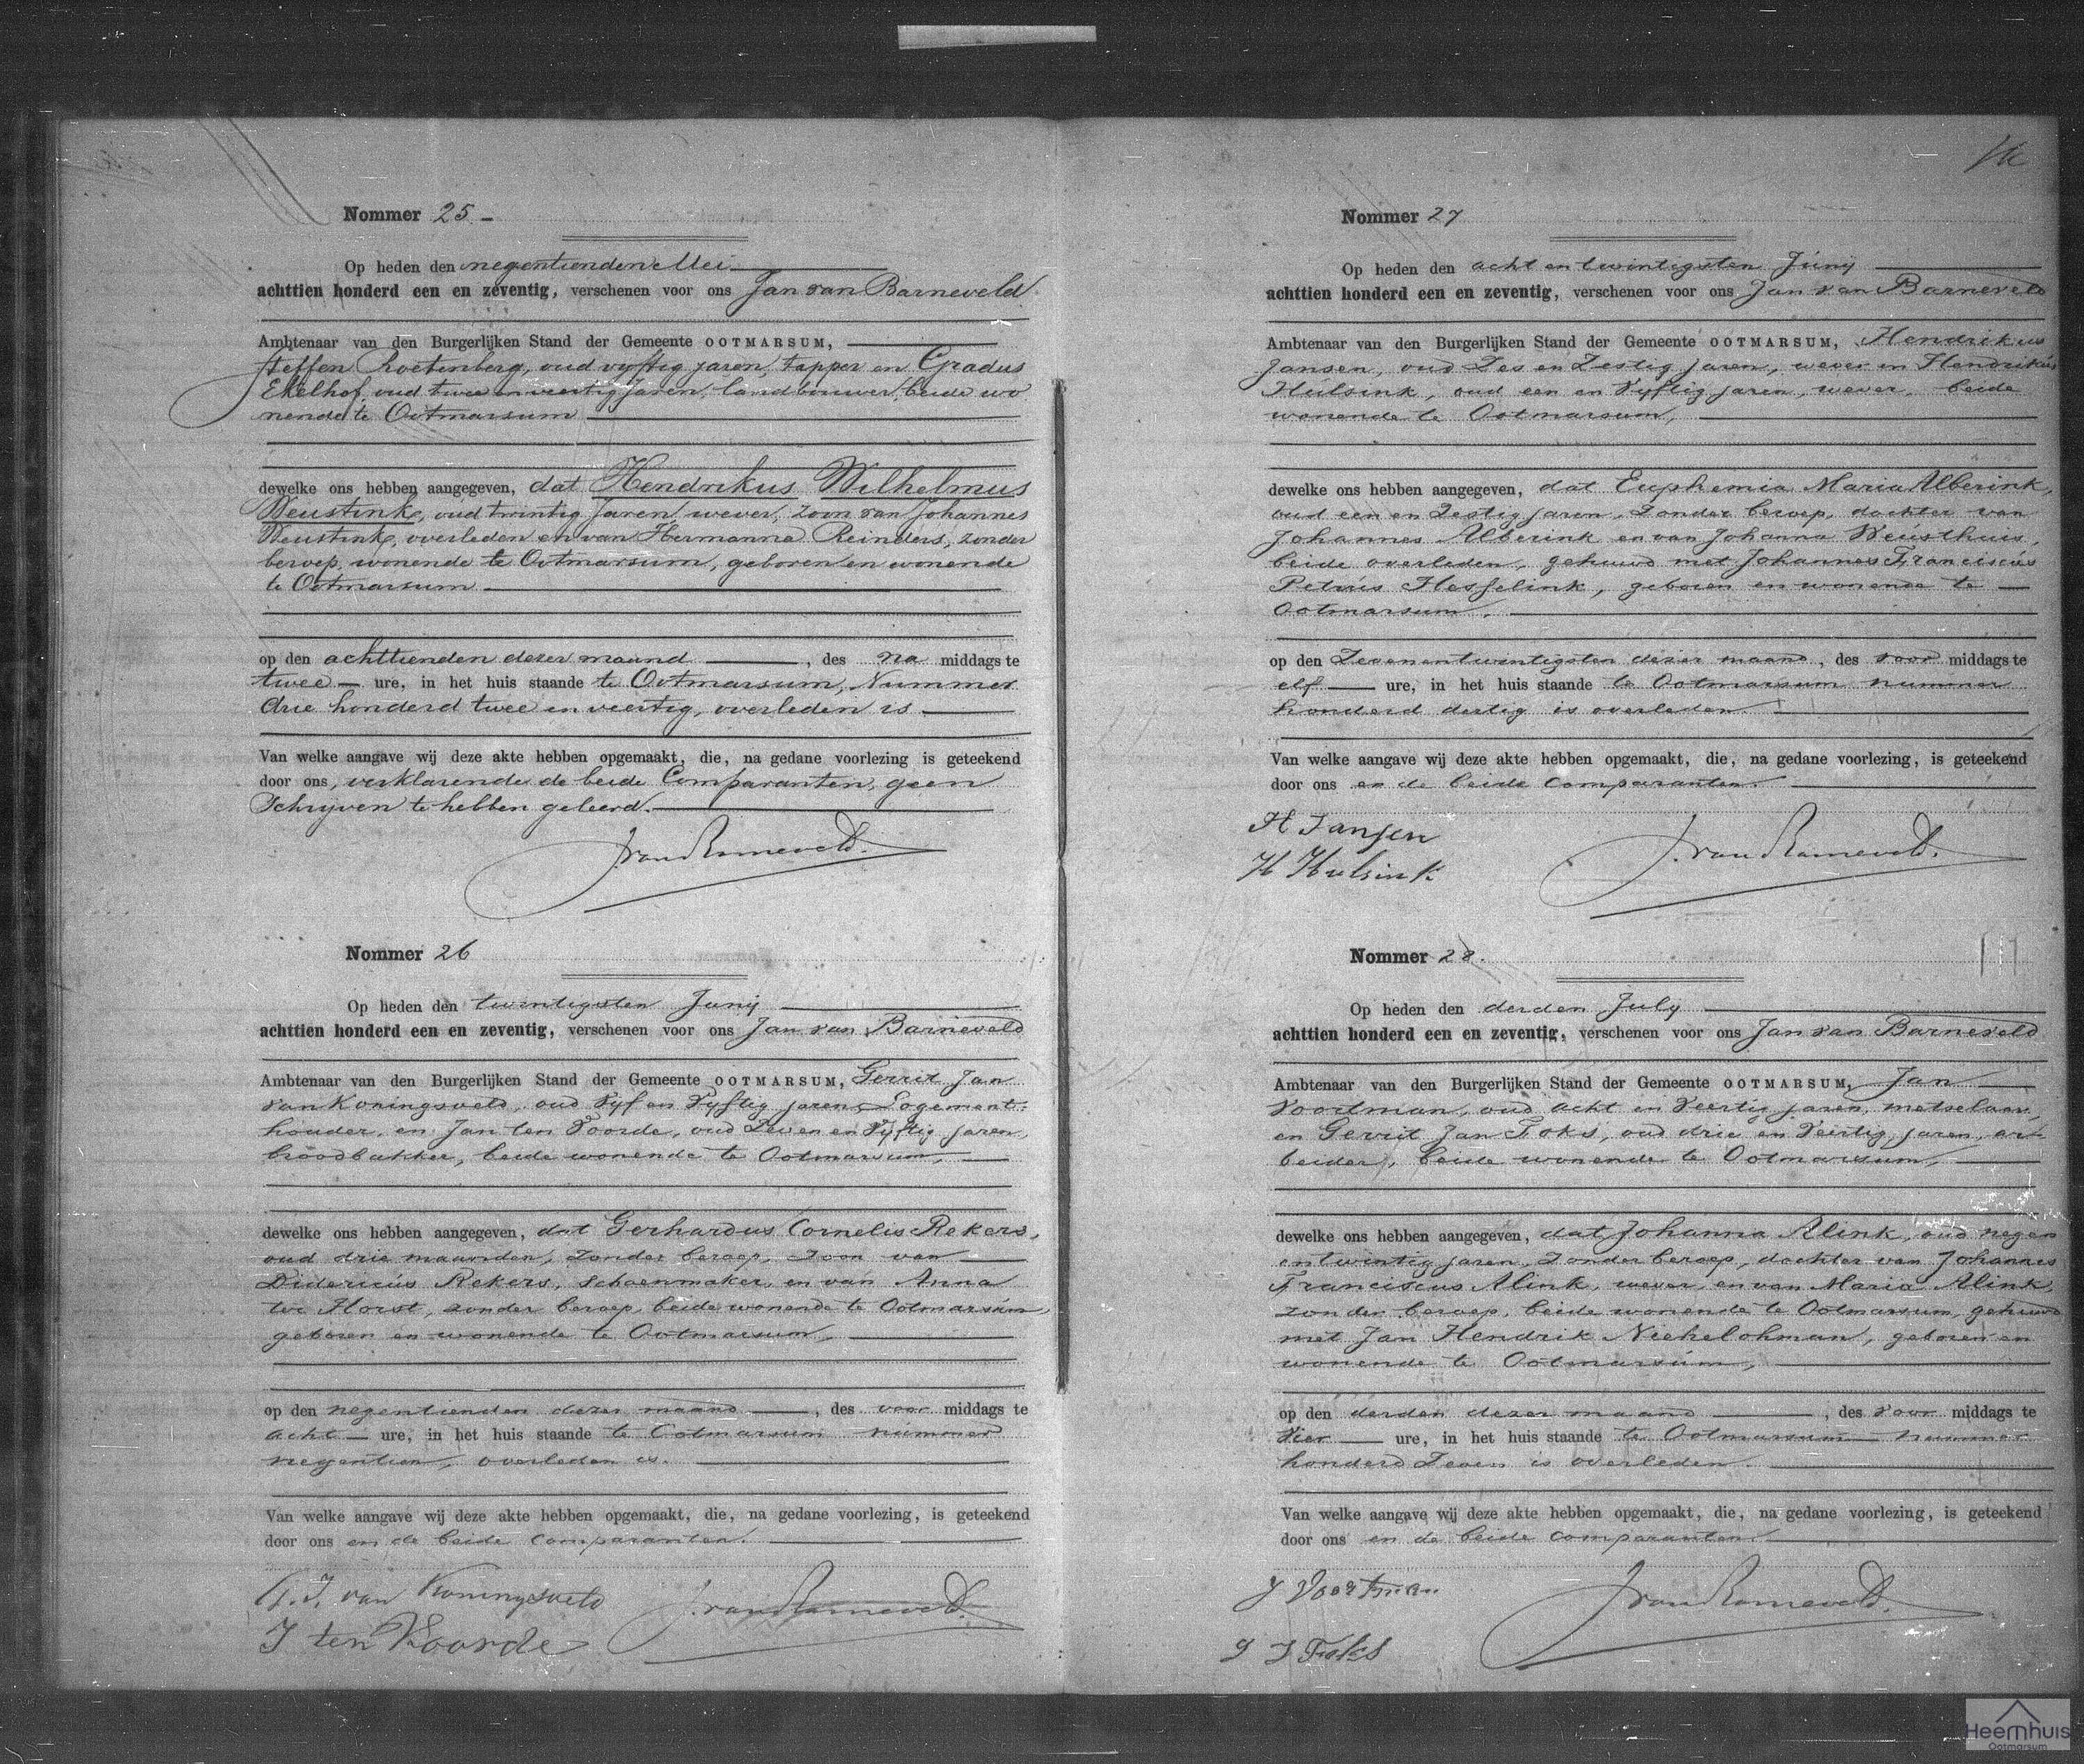 Nommer 25 -
Op heden den negentienden Mei
achttien honderd een en zeventig, verschenen voor ons Jan van Barneveld
Ambtenaar van den Burgerlijken Stand der Gemeente OOTMARSUM,
Steffen Roetenberg, oud vyftig jaren, tapper en Gradus
Ekelhof, oud twee en veertig Jaren, landbouwer, beide wo
nende te Ootmarsum
dewelke ons hebben aangegeven, dat Hendrikus Wilhelmus
Weustink, oud twintig Jaren, wever, zoon van Johannes
Weustink, overleden en van Hermanna Reinders, zonder
beroep, wonende te Ootmarsum, geboren en wonende
te Ootmarsum
op den achttienden dezer maand, des na middags te
twee ure, in het huis staande te Ootmarsum, Nummer
drie honderd twee en veertig, overleden is
Van welke aangave wij deze akte hebben opgemaakt, die, na gedane voorlezing is geteekend
door ons, verklarende de beide Comparanten, geen
Schryven te hebben geleerd.
J. van Barneveld.
Nommer 26
Op heden den twintigsten Junij
achttien honderd een en zeventig, verschenen voor ons Jan van Barneveld
Ambtenaar van den Burgerlijken Stand der Gemeente OOTMARSUM, Gerrit Jan
van Koningsveld, oud Vyf en Vyftig jaren, Logement-
houder, en Jan ten Voorde, oud Zeven en Vyftig jaren,
broodbakker, beide wonende te Ootmarsum,
dewelke ons hebben aangegeven, dat Gerhardus Cornelis Rekers,
oud drie maanden, zonder beroep, Zoon van
Didericus Rekers, schoenmaker, en van Anna
ter Horst, zonder beroep, beide wonende te Ootmarsum,
geboren en wonende te Ootmarsum,
op den negentienden dezer maand, des voor middags te
acht ure, in het huis staande te Ootmarsum nummer
negentien, overleden is.
Van welke aangave wij deze akte hebben opgemaakt, die, na gedane voorlezing, is geteekend
door ons en de beide comparanten.
G. J. van Koningsveld
J. van Barneveld.
J ten Voorde
Nommer 27
Op heden den acht en twintigsten Junij
achttien honderd een en zeventig, verschenen voor ons Jan van Barneveld
Ambtenaar van den Burgerlijken Stand der Gemeente OOTMARSUM, Hendrikus
Jansen, oud Zes en Zestig jaren, wever en Hendrikus
Hulsink, oud een en Vyftig jaren, wever, beide
wonende te Ootmarsum,
dewelke ons hebben aangegeven, dat Euphemia Maria Alberink,
oud een en Zestig jaren, Zonder beroep, dochter van
Johannes Alberink en van Johanna Weusthuis,
beide overleden, gehuwd met Johannes Franciscus
Petrus Hesselink, geboren en wonende te
Ootmarsum,
op den Zevenentwintigsten dezer maand, des voor middags te
elf ure, in het huis staande te Ootmarsum nummer
honderd dertig is overleden.
Van welke aangave wij deze akte hebben opgemaakt, die, na gedane voorlezing, is geteekend
door ons en de beide comparanten.
H Jansen
J. van Barneveld.
H Hulsink
Nommer 28.
Op heden den derden July
achttien honderd een en zeventig, verschenen voor ons Jan van Barneveld
Ambtenaar van den Burgerlijken Stand der Gemeente OOTMARSUM, Jan
Voortman, oud acht en Veertig jaren, metselaar,
en Gerrit Jan Foks, oud drie en Veertig jaren, ar-
beider, beide wonende te Ootmarsum,
dewelke ons hebben aangegeven, dat Johanna Alink, oud negen
en twintig jaren, Zonder beroep, dochter van Johannes
Franciscus Alink, wever, en van Maria Alink,
zonder beroep, beide wonende te Ootmarsum, gehuwd
met Jan Hendrik Niehelohman, geboren en
wonende te Ootmarsum,
op den derden dezer maand, des voor middags te
Vier ure, in het huis staande te Ootmarsum nummer
honderd Zeven is overleden.
Van welke aangave wij deze akte hebben opgemaakt, die, na gedane voorlezing, is geteekend
door ons en de beide comparanten.
J Voortman
J van Barneveld.
G J Foks
Heemhuis
Ootmarsum